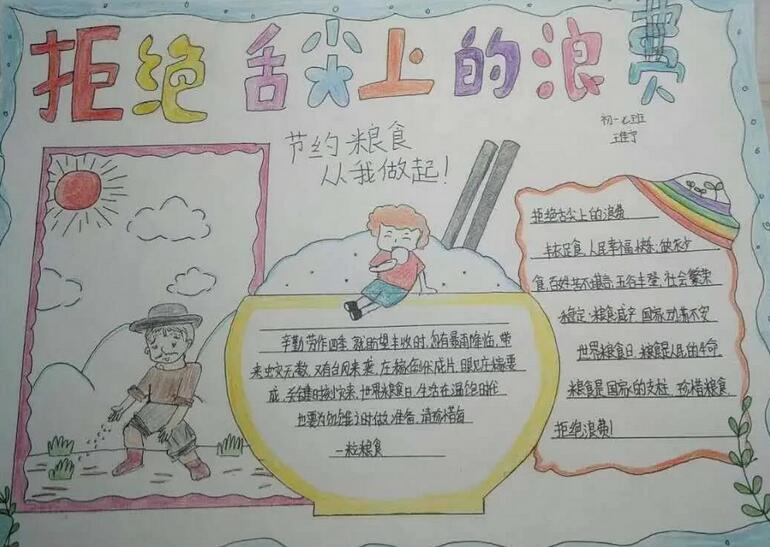 拒绝舌尖上的浪费
节约粮食
从我做起!
初一七班
辛勤劳作四季,就盼望丰收时,忽有暴雨降临,带
来虫灾无数,又有台风来袭,庄稼倒伏成片,眼见庄稼要
成,关键时候少灾来,世界粮食日,生活在温饱时代
也要为饥饿时做准备,请珍惜每
一粒粮食
拒绝舌尖上的浪费
丰衣足食,人民幸福快乐,缺衣少
食,百姓苦不堪言,五谷丰登,社会繁荣
稳定,粮食减产,国家动荡不安
世界粮食日,粮食是人民的生命,
粮食是国家的支柱,珍惜粮食
拒绝浪费!